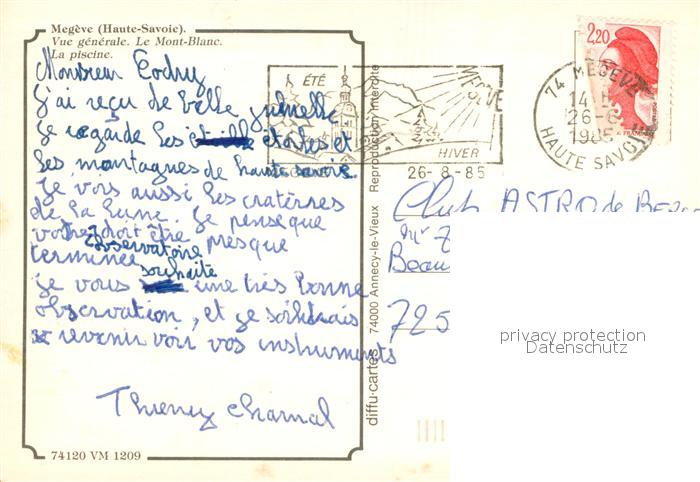 Megève (Haute-Savoie).
Vue générale. Le Mont-Blanc.
La piscine.
Monsieur
J'ai reçu de belle jumelle
je regarde les étoiles et
les montagnes de haute savoie.
Je vois aussi les cratères
de la lune. Je pense que
votre observatoire doit être presque
terminée
Je vous souhaite une très bonne
observation, et je
revenir voir vos instruments
Thierry
74120 VM 1209
diffu-cartes 74000 Annecy-le-Vieux Reproduction interdite
ÉTÉ
HIVER
26-8-85
2,20
74 MEGEVE
14
26-8
1985
HAUTE SAVOIE
Club ASTRO de
Beau
725
privacy protection
Datenschutz